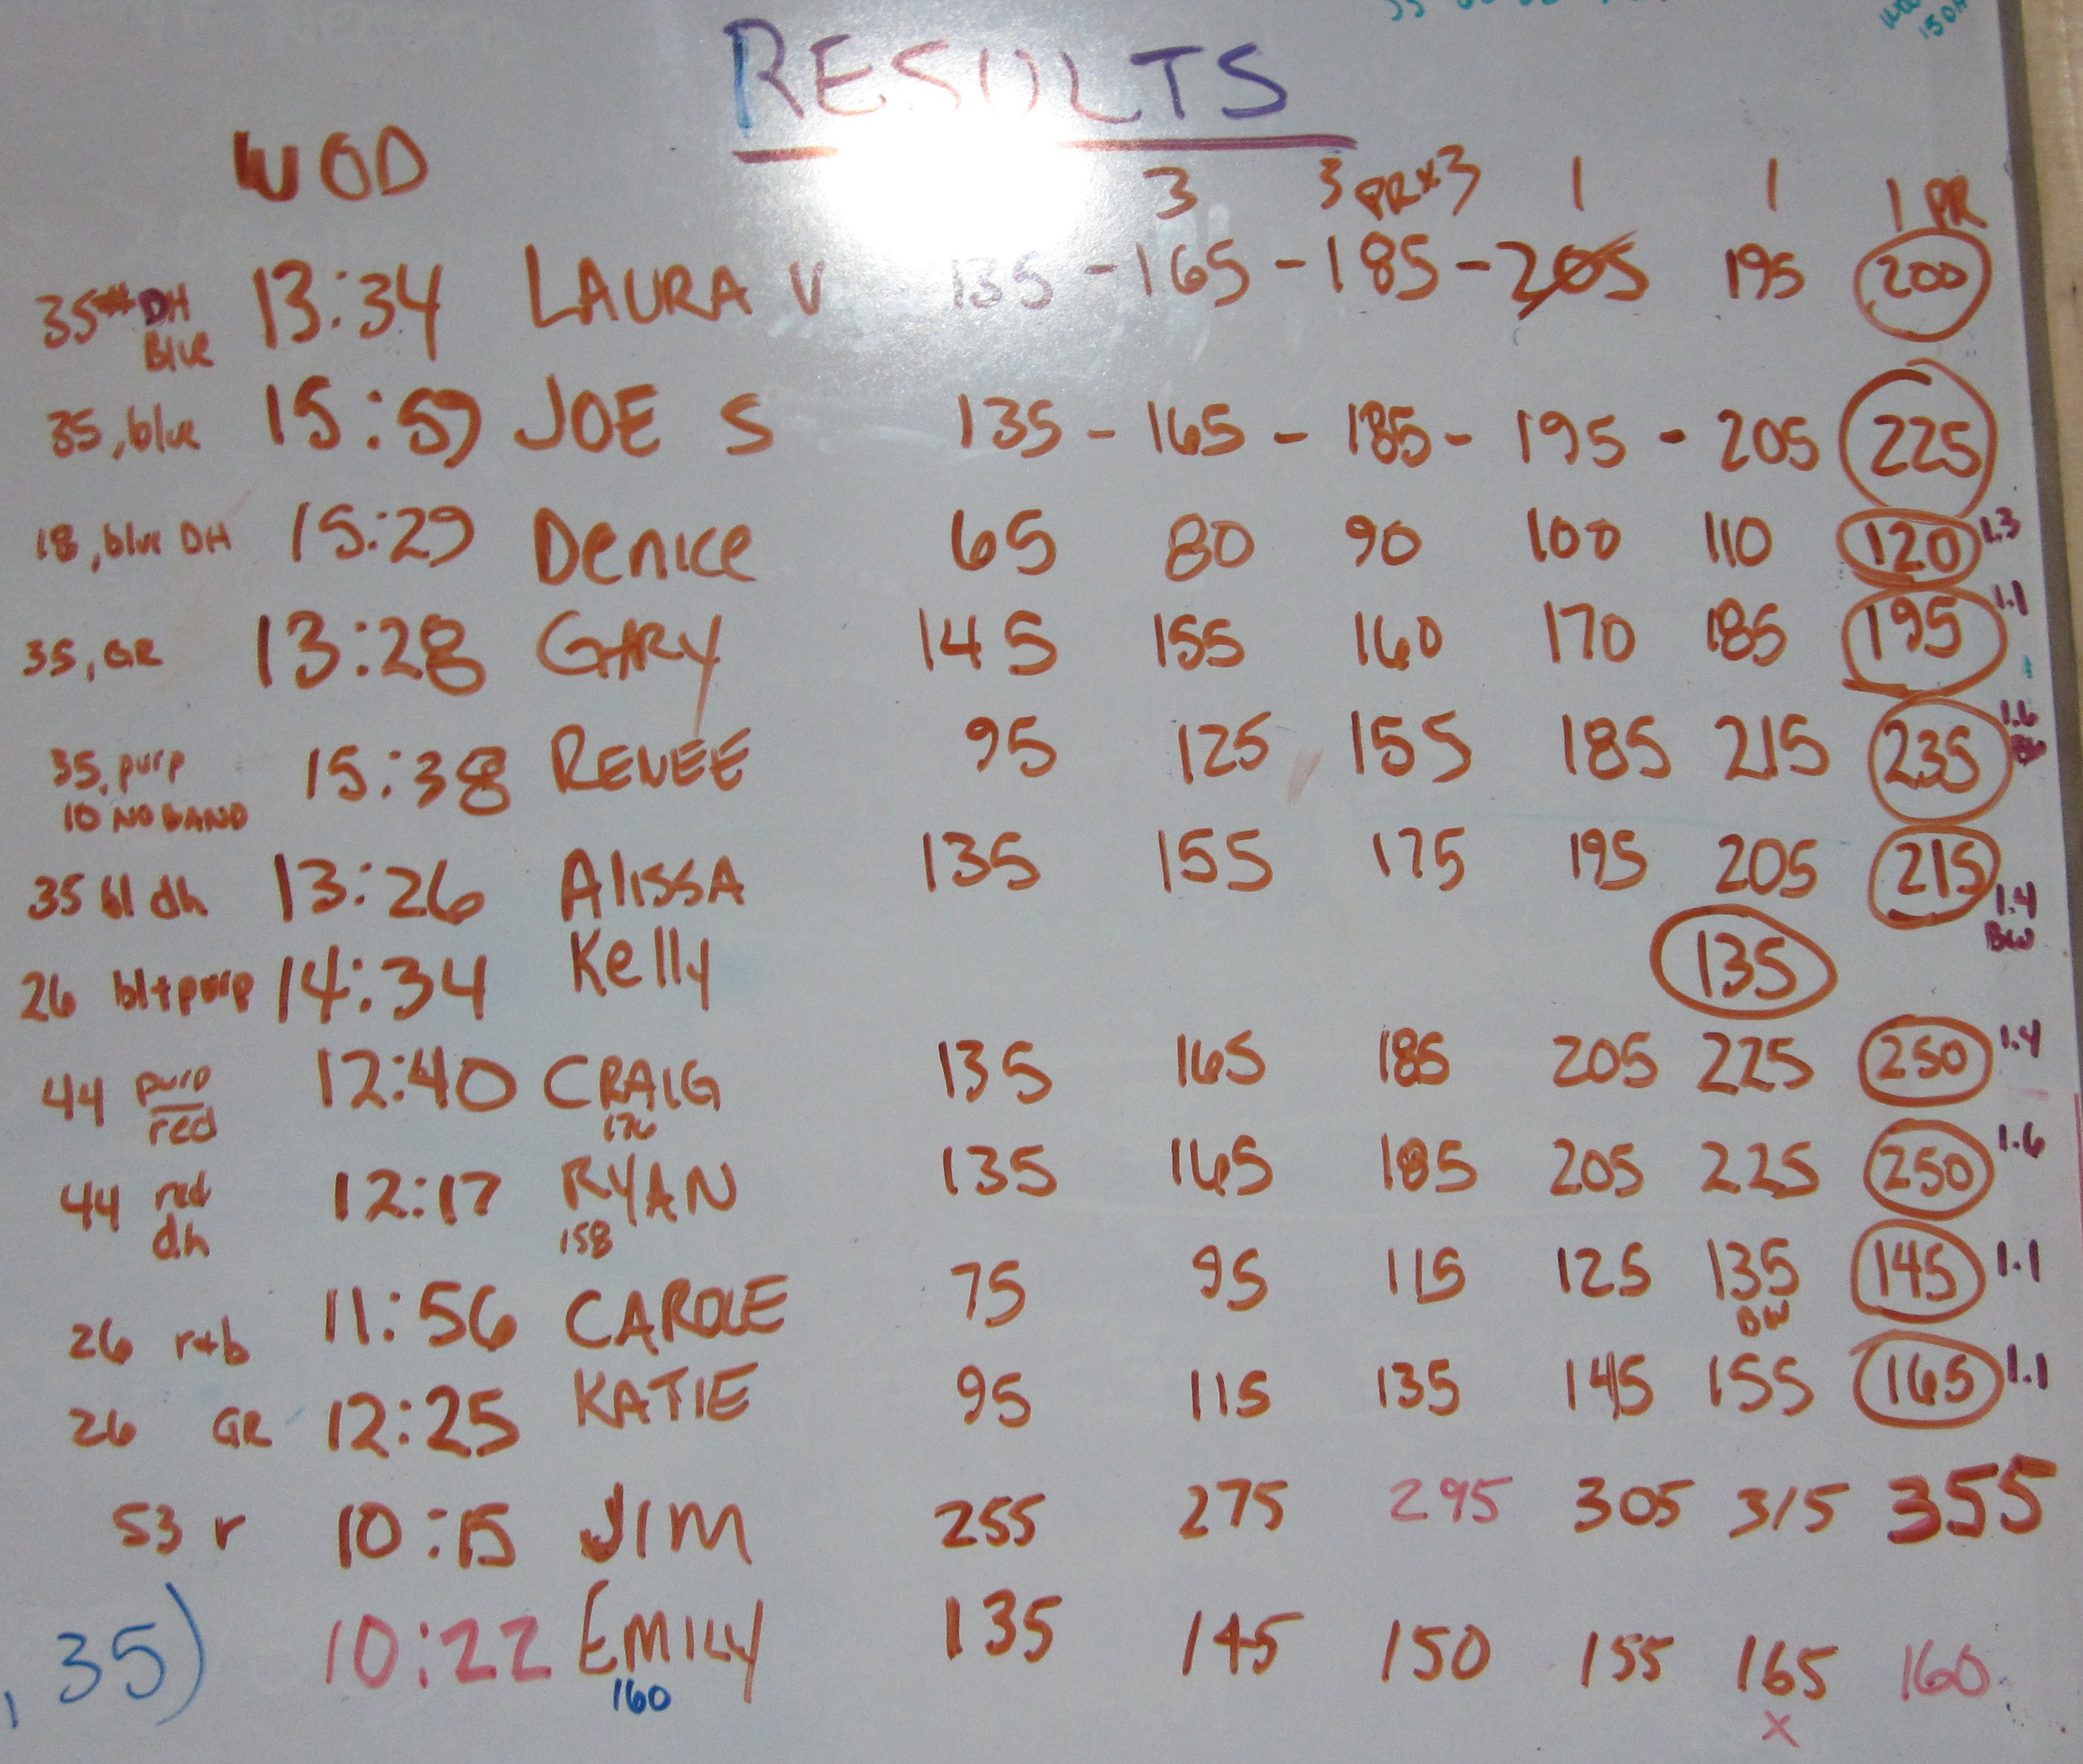 RESULTS
WOD 3 3 PRx3 1 1 1 PR
35# DH Blue 13:34 LAURA V 135 - 165 - 185 - 205 195 200
35, blue 15:59 JOE S 135 - 165 - 185 - 195 - 205 225
18, blue DH 15:29 Denice 65 80 90 100 110 120 1.3
35, GR 13:28 GARY 145 155 160 170 185 195 1.1
35, purp 15:38 RENEE 95 125 155 185 215 235 1.6
10 NO BAND
35 bl dh 13:26 AlissA 135 155 175 195 205 215 1.4 BW
26 bl+purp 14:34 Kelly 135
44 purp red 12:40 CRAIG 135 165 185 205 225 250 1.4
176
44 red dh 12:17 RYAN 135 165 185 205 225 250 1.6
158
26 r+b 11:56 CAROLE 75 95 115 125 135 BW 145 1.1
26 GR 12:25 KATIE 95 115 135 145 155 165 1.1
53 r 10:15 JIM 255 275 295 305 315 355
, 35) 10:22 EMILY 135 145 150 155 165 160
160 X